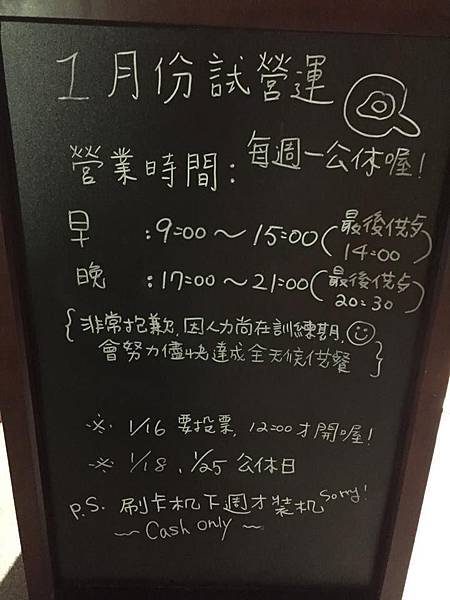 1月份試營運
營業時間: 每週一公休喔!
早 :9=00～15=00(最後供夕
14=00)
晚 :17=00～21=00(最後供夕
20=30)
{非常抱歉,因人力尚在訓練期,
會努力儘快達成全天候供餐}
※ 1/16 要投票, 12=00才開喔!
※ 1/18、1/25 公休日
P.S. 刷卡机下週才裝机 sorry!
～Cash only～